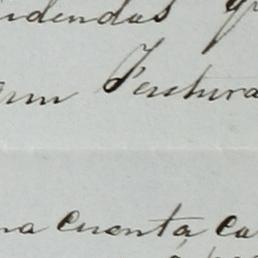 idendas
um Ventura
na cuenta ca